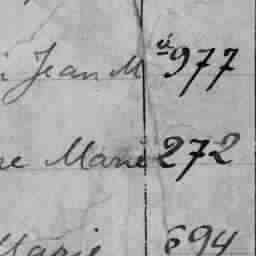 Jean M 977
Marie 272
Marie 694